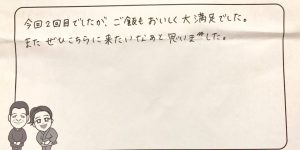 今回2回目でしたが、ご飯もおいしく大満足でした。
また ぜひこちらに来たいなあと思いました。